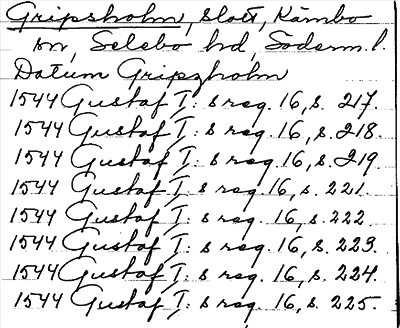 Gripsholm, slott, Kärnbo
sn, Selebo hd, Söderm. l.
Datum Gripzholm
1544 Gustaf I: s reg. 16, s. 217.
1544 Gustaf I: s reg. 16, s. 218.
1544 Gustaf I: s reg. 16, s. 219.
1544 Gustaf I: s reg. 16, s. 221.
1544 Gustaf I: s reg. 16, s. 222.
1544 Gustaf I: s reg. 16, s. 223.
1544 Gustaf I: s reg. 16, s. 224.
1544 Gustaf I: s reg. 16, s. 225.